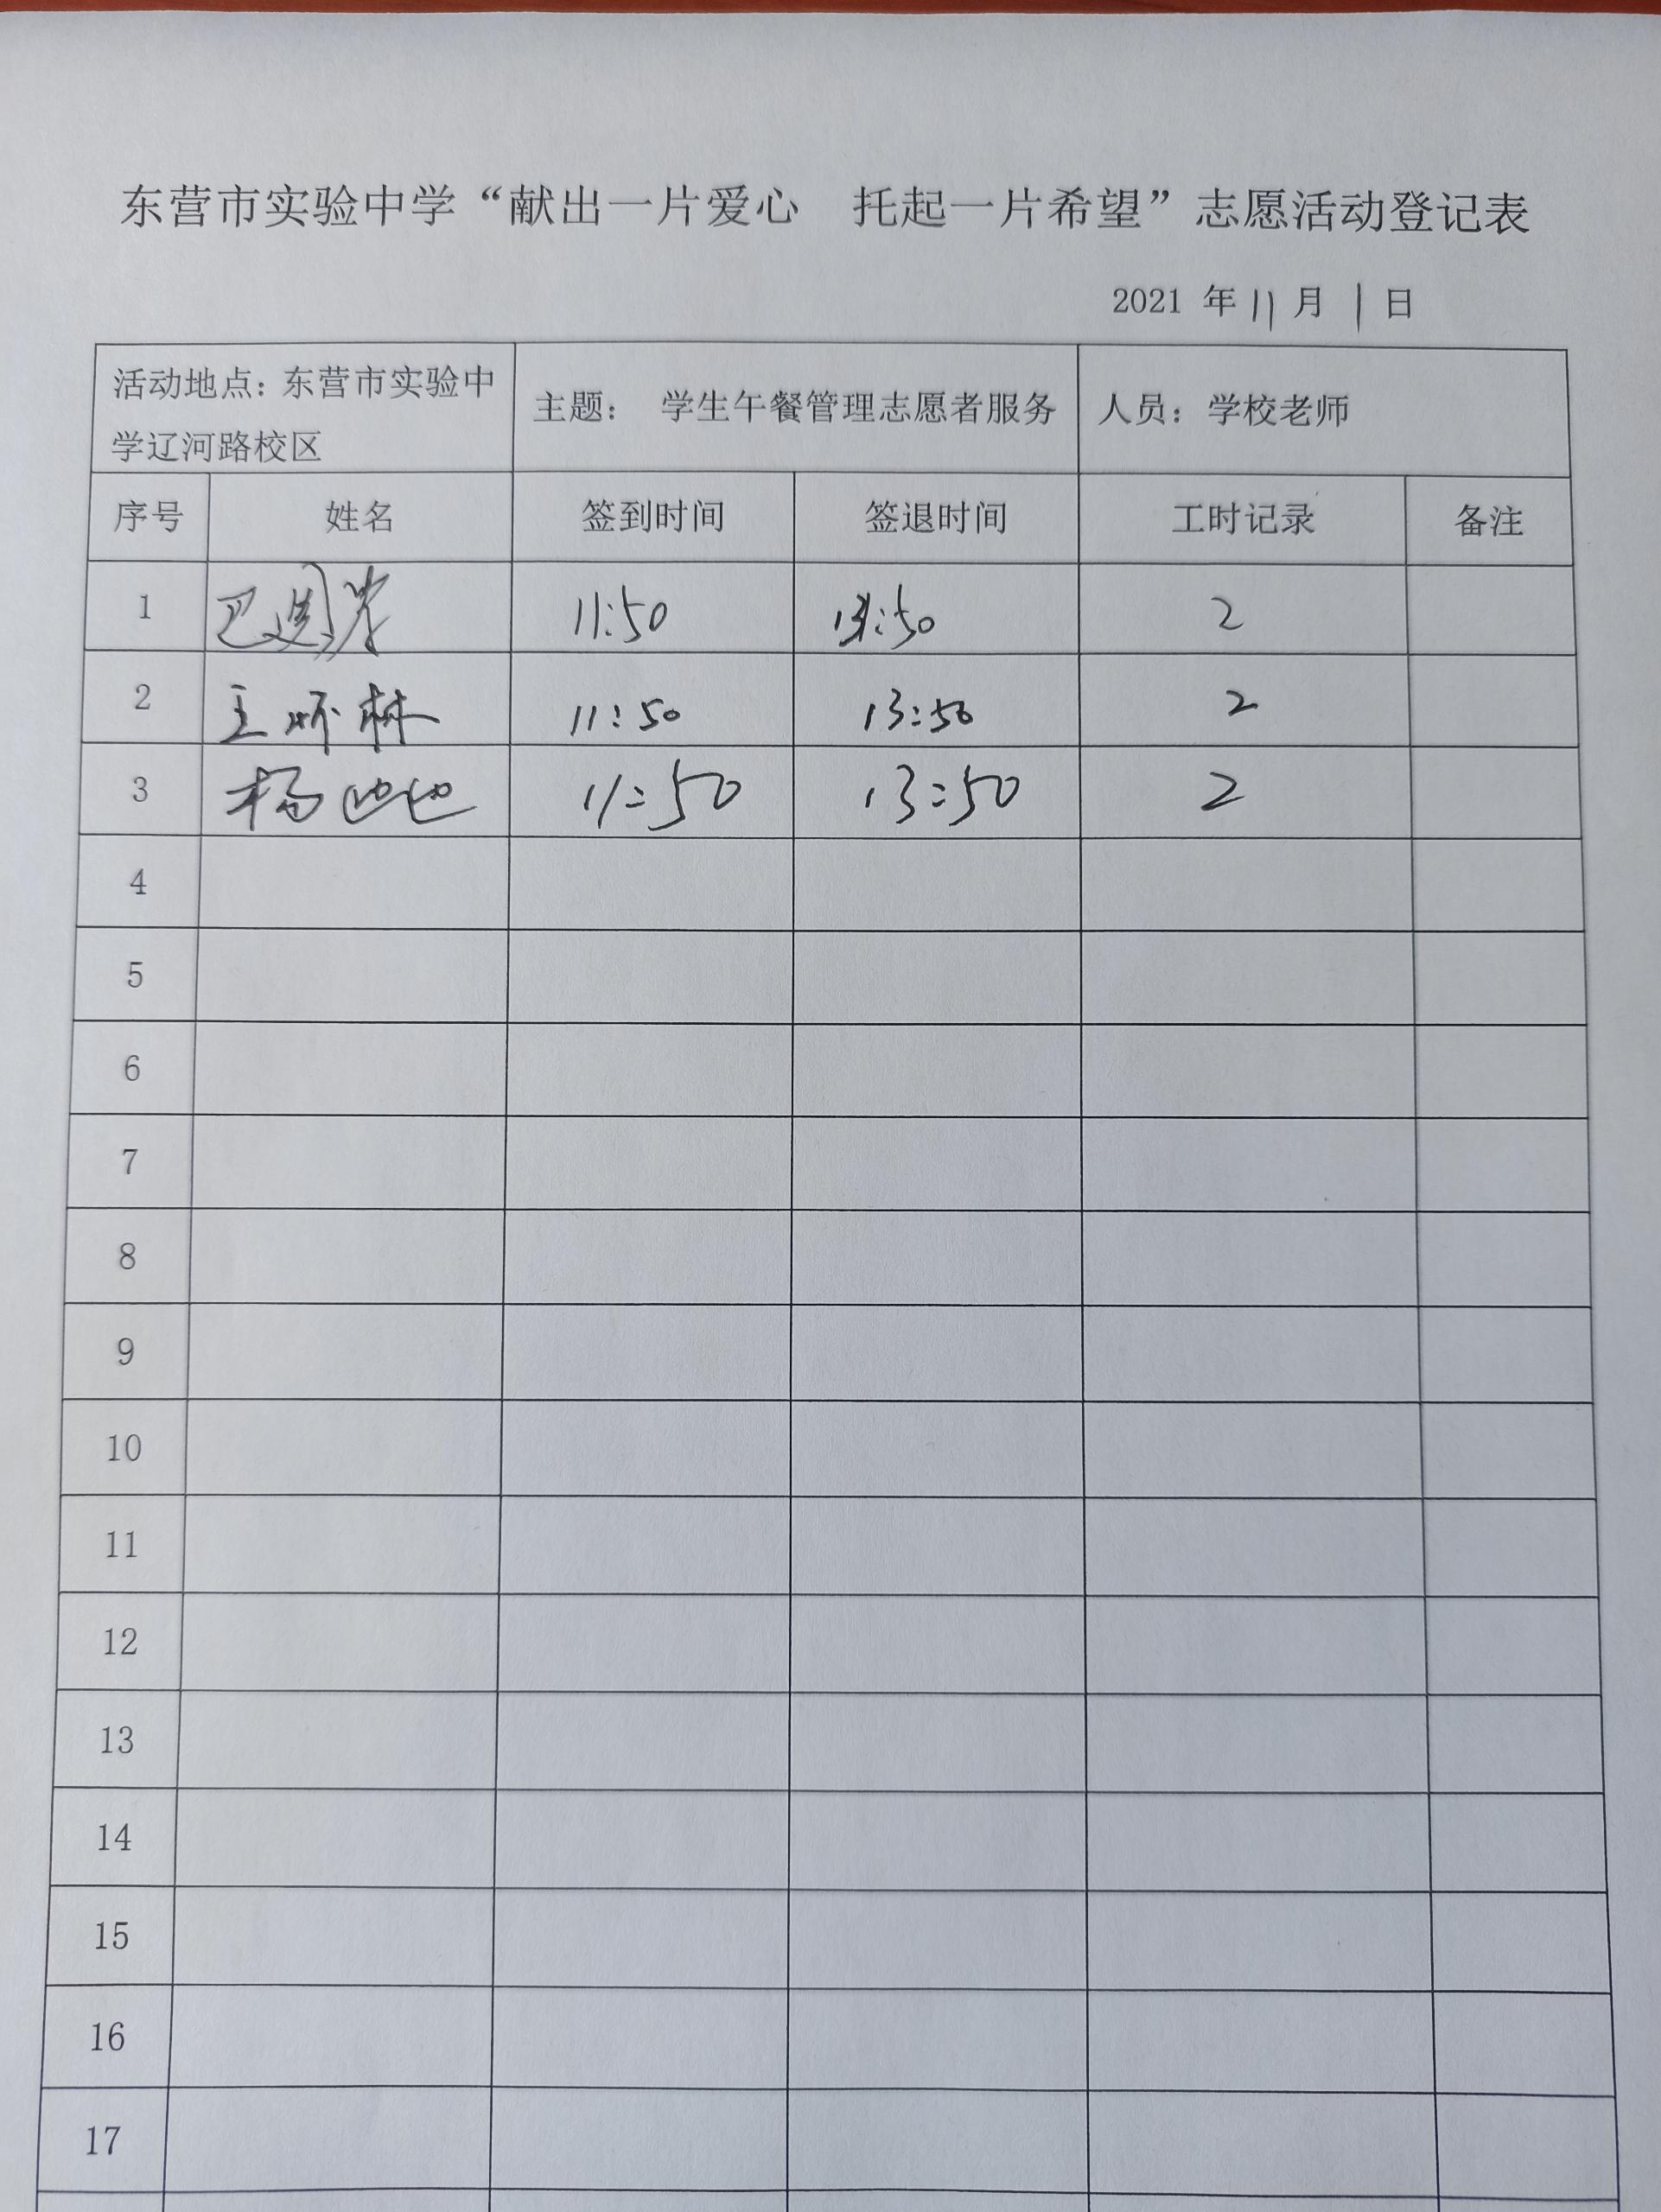 东营市实验中学“献出一片爱心 托起一片希望”志愿活动登记表
2021 年 11 月 1 日
活动地点：东营市实验中
学辽河路校区
主题： 学生午餐管理志愿者服务
人员：学校老师
序号 姓名 签到时间 签退时间 工时记录 备注
1 巴 11:50 13:50 2
2 王 林 11:50 13:50 2
3 杨 11:50 13:50 2
4
5
6
7
8
9
10
11
12
13
14
15
16
17